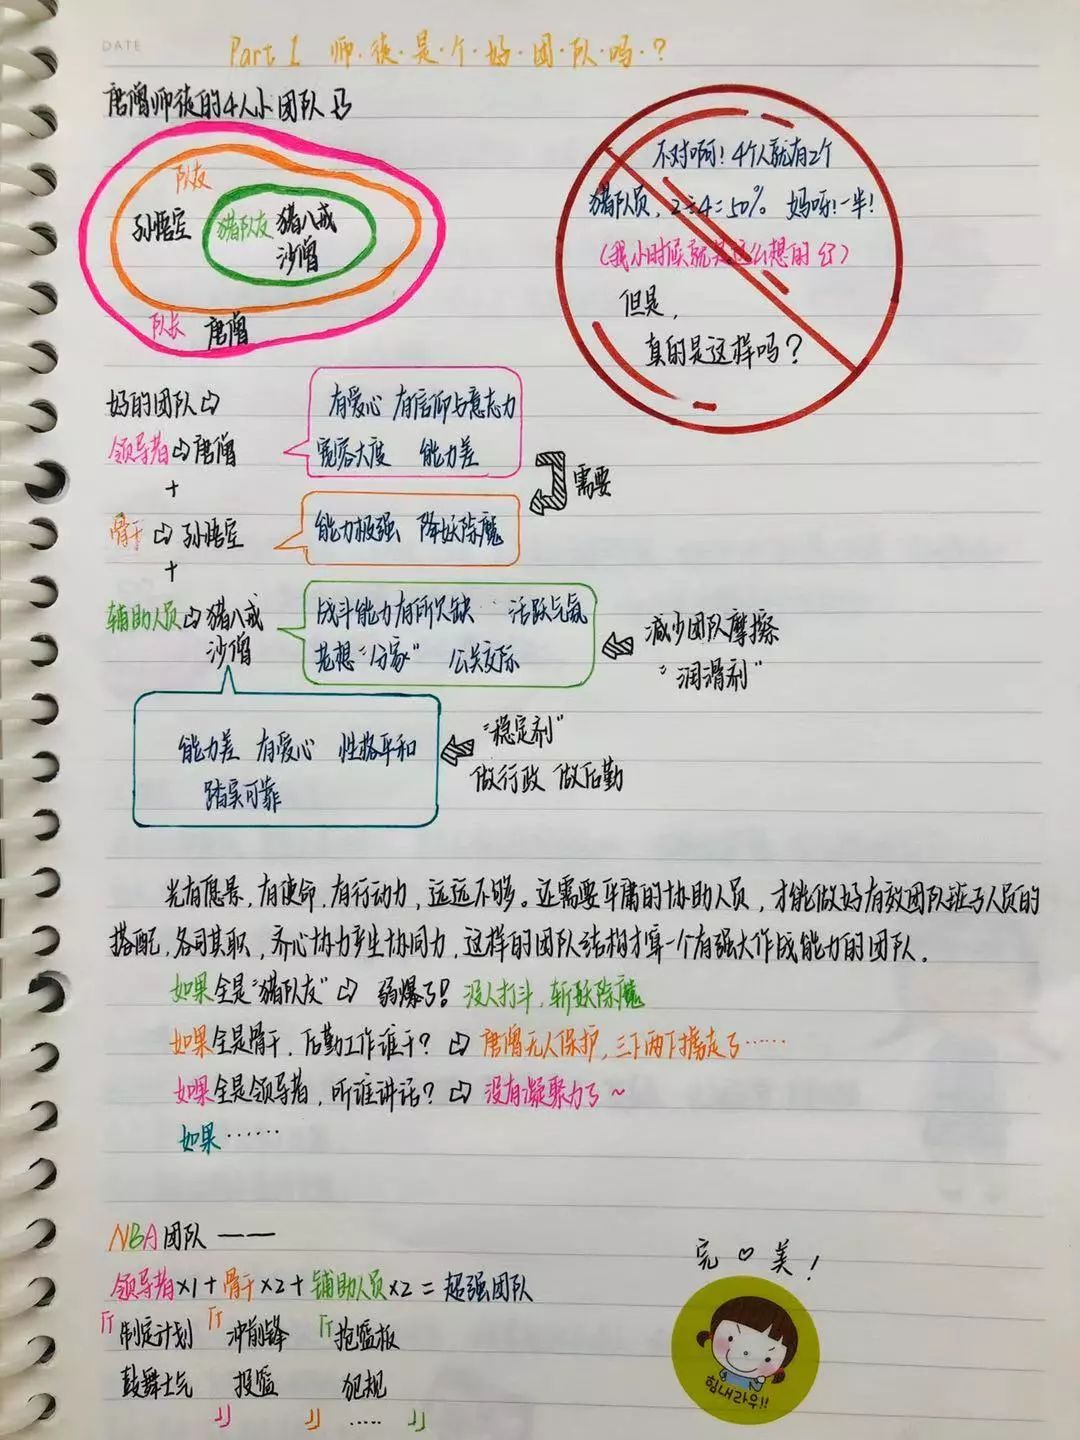 DATE
Part 1 师·徒·是·个·好·团·队·吗·?
唐僧师徒的4人小团队
队友
孙悟空 猪队友 猪八戒
沙僧
队长 唐僧
不对啊!4个人就有2个
猪队员,2÷4=50%。妈呀!一半!
(我小时候就是这么想的)
但是,
真的是这样吗?
好的团队⇨
领导者⇨唐僧
有爱心 有信仰与意志力
宽容大度 能力差
+
需要
骨干⇨孙悟空
能力极强 降妖除魔
+
辅助人员⇨猪八戒
沙僧
战斗能力有所欠缺 活跃气氛
老想“分家” 公关交际
减少团队摩擦
“润滑剂”
能力差 有爱心 性格平和
踏实可靠
“稳定剂”
做行政 做后勤
光有愿景,有使命,有行动力,远远不够。还需要平庸的协助人员,才能做好有效团队班子人员的
搭配,各司其职,齐心协力产生协同力,这样的团队结构才算一个有强大作战能力的团队。
如果全是“猪队友”⇨ 弱爆了!没人打斗,斩妖除魔
如果全是骨干,后勤工作谁干?⇨ 唐僧无人保护,三下两下掳走了……
如果全是领导者,听谁讲话?⇨ 没有凝聚力了~
如果……
NBA团队——
领导者×1+骨干×2+辅助人员×2=超强团队
『制定计划 『冲前锋 『抢篮板
鼓舞士气 投篮 犯规
』 』 …… 』
完♡美!
힘내라우!!